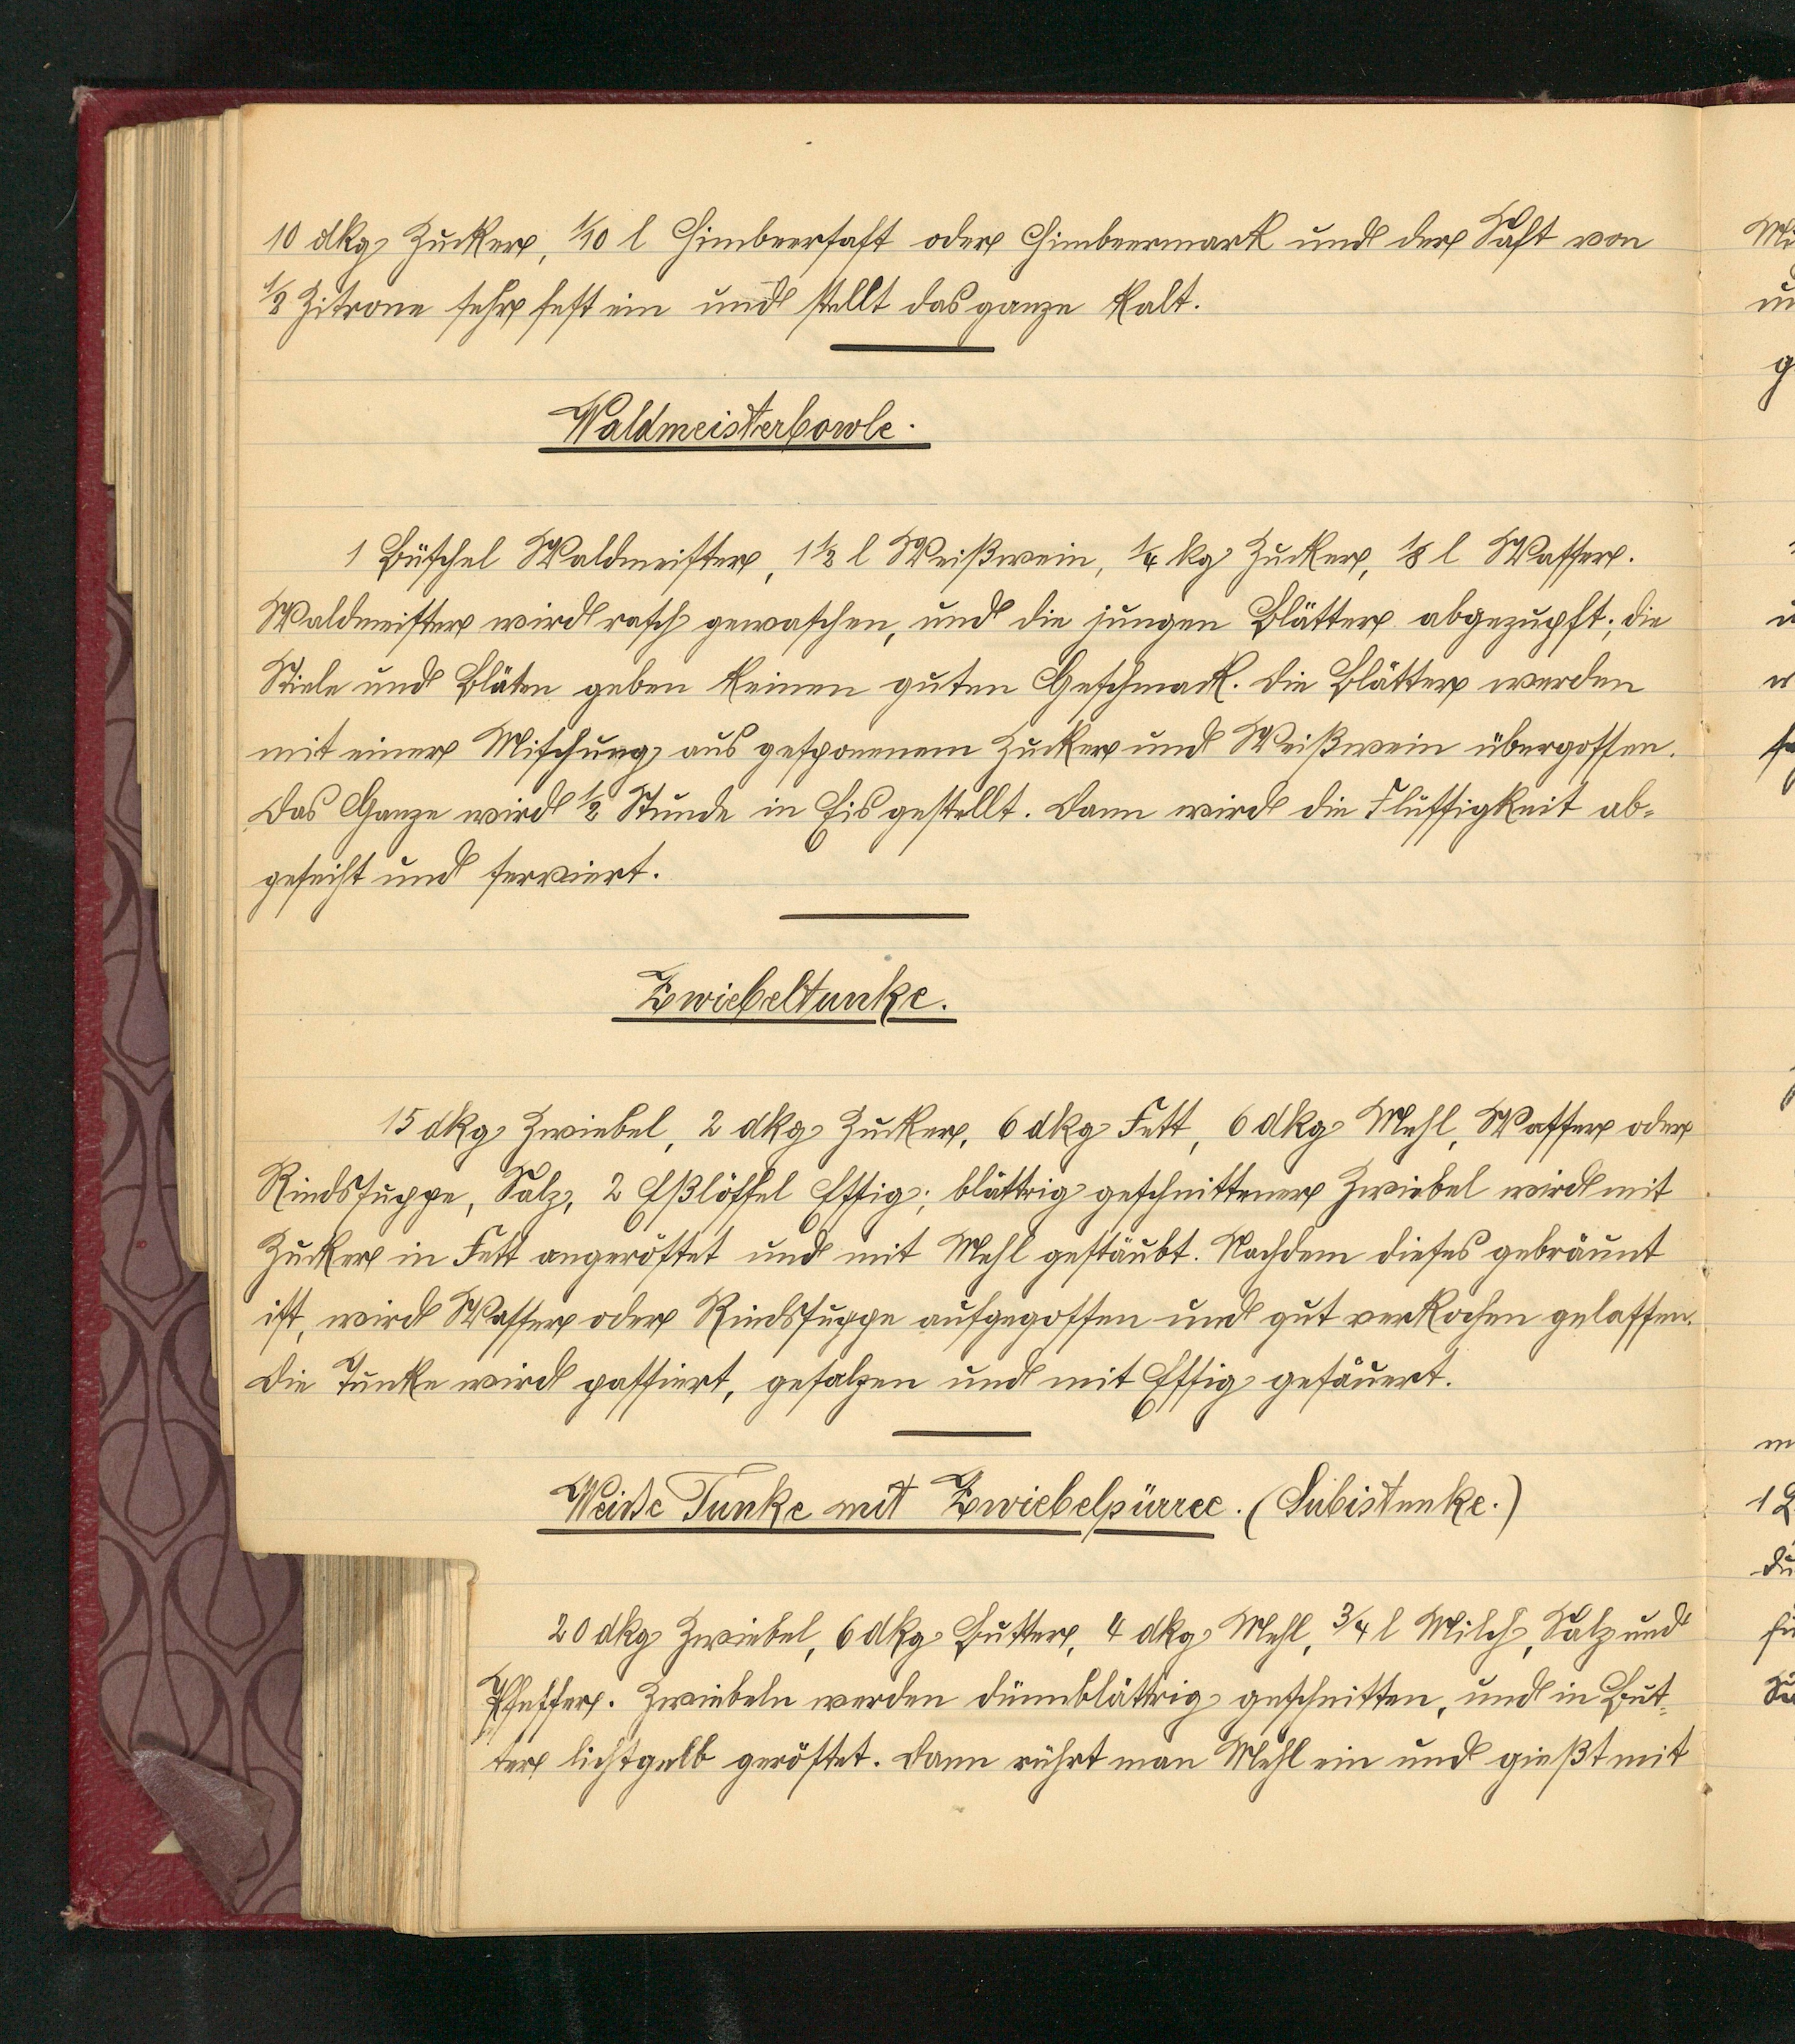 10 dkg Zucker, 1/10 l Himbeersaft oder Himbeermark und der Saft von
1/2 Zitrone sehr fest ein und stellt das ganze kalt.
Waldmeisterbowle.
1 Büschel Waldmeister, 1 1/2 l Weißwein, 1/4 kg Zucker, 1/8 l Wasser.
Waldmeister wird rasch gewaschen, und die jungen Blätter abgezupft; die
Stiele und Blüten geben keinen guten Geschmack. Die Blätter werden
mit einer Mischung aus gesponnenem Zucker und Weißwein übergossen.
Das Ganze wird 1/2 Stunde in Eis gestellt. Dann wird die Flüssigkeit ab-
geseiht und serviert.
Zwiebeltunke.
15 dkg Zwiebel, 2 dkg Zucker, 6 dkg Fett, 6 dkg Mehl, Wasser oder
Rindssuppe, Salz, 2 Eßlöffel Essig; blättrig geschnittener Zwiebel wird mit
Zucker in Fett angeröstet und mit Mehl gestäubt. Nachdem dieses gebräunt
ist, wird Wasser oder Rindssuppe aufgegossen und gut verkochen gelassen.
Die Tunke wird passiert, gesalzen und mit Essig gesäuert.
Weiße Tunke mit Zwiebelpürree. (Subistunke.)
20 dkg Zwiebel, 6 dkg Butter, 4 dkg Mehl, 3/4 l Milch, Salz und
Pfeffer. Zwiebeln werden dünnblättrig geschnitten, und in But-
ter lichtgelb geröstet. Dann rührt man Mehl ein und gießt mit